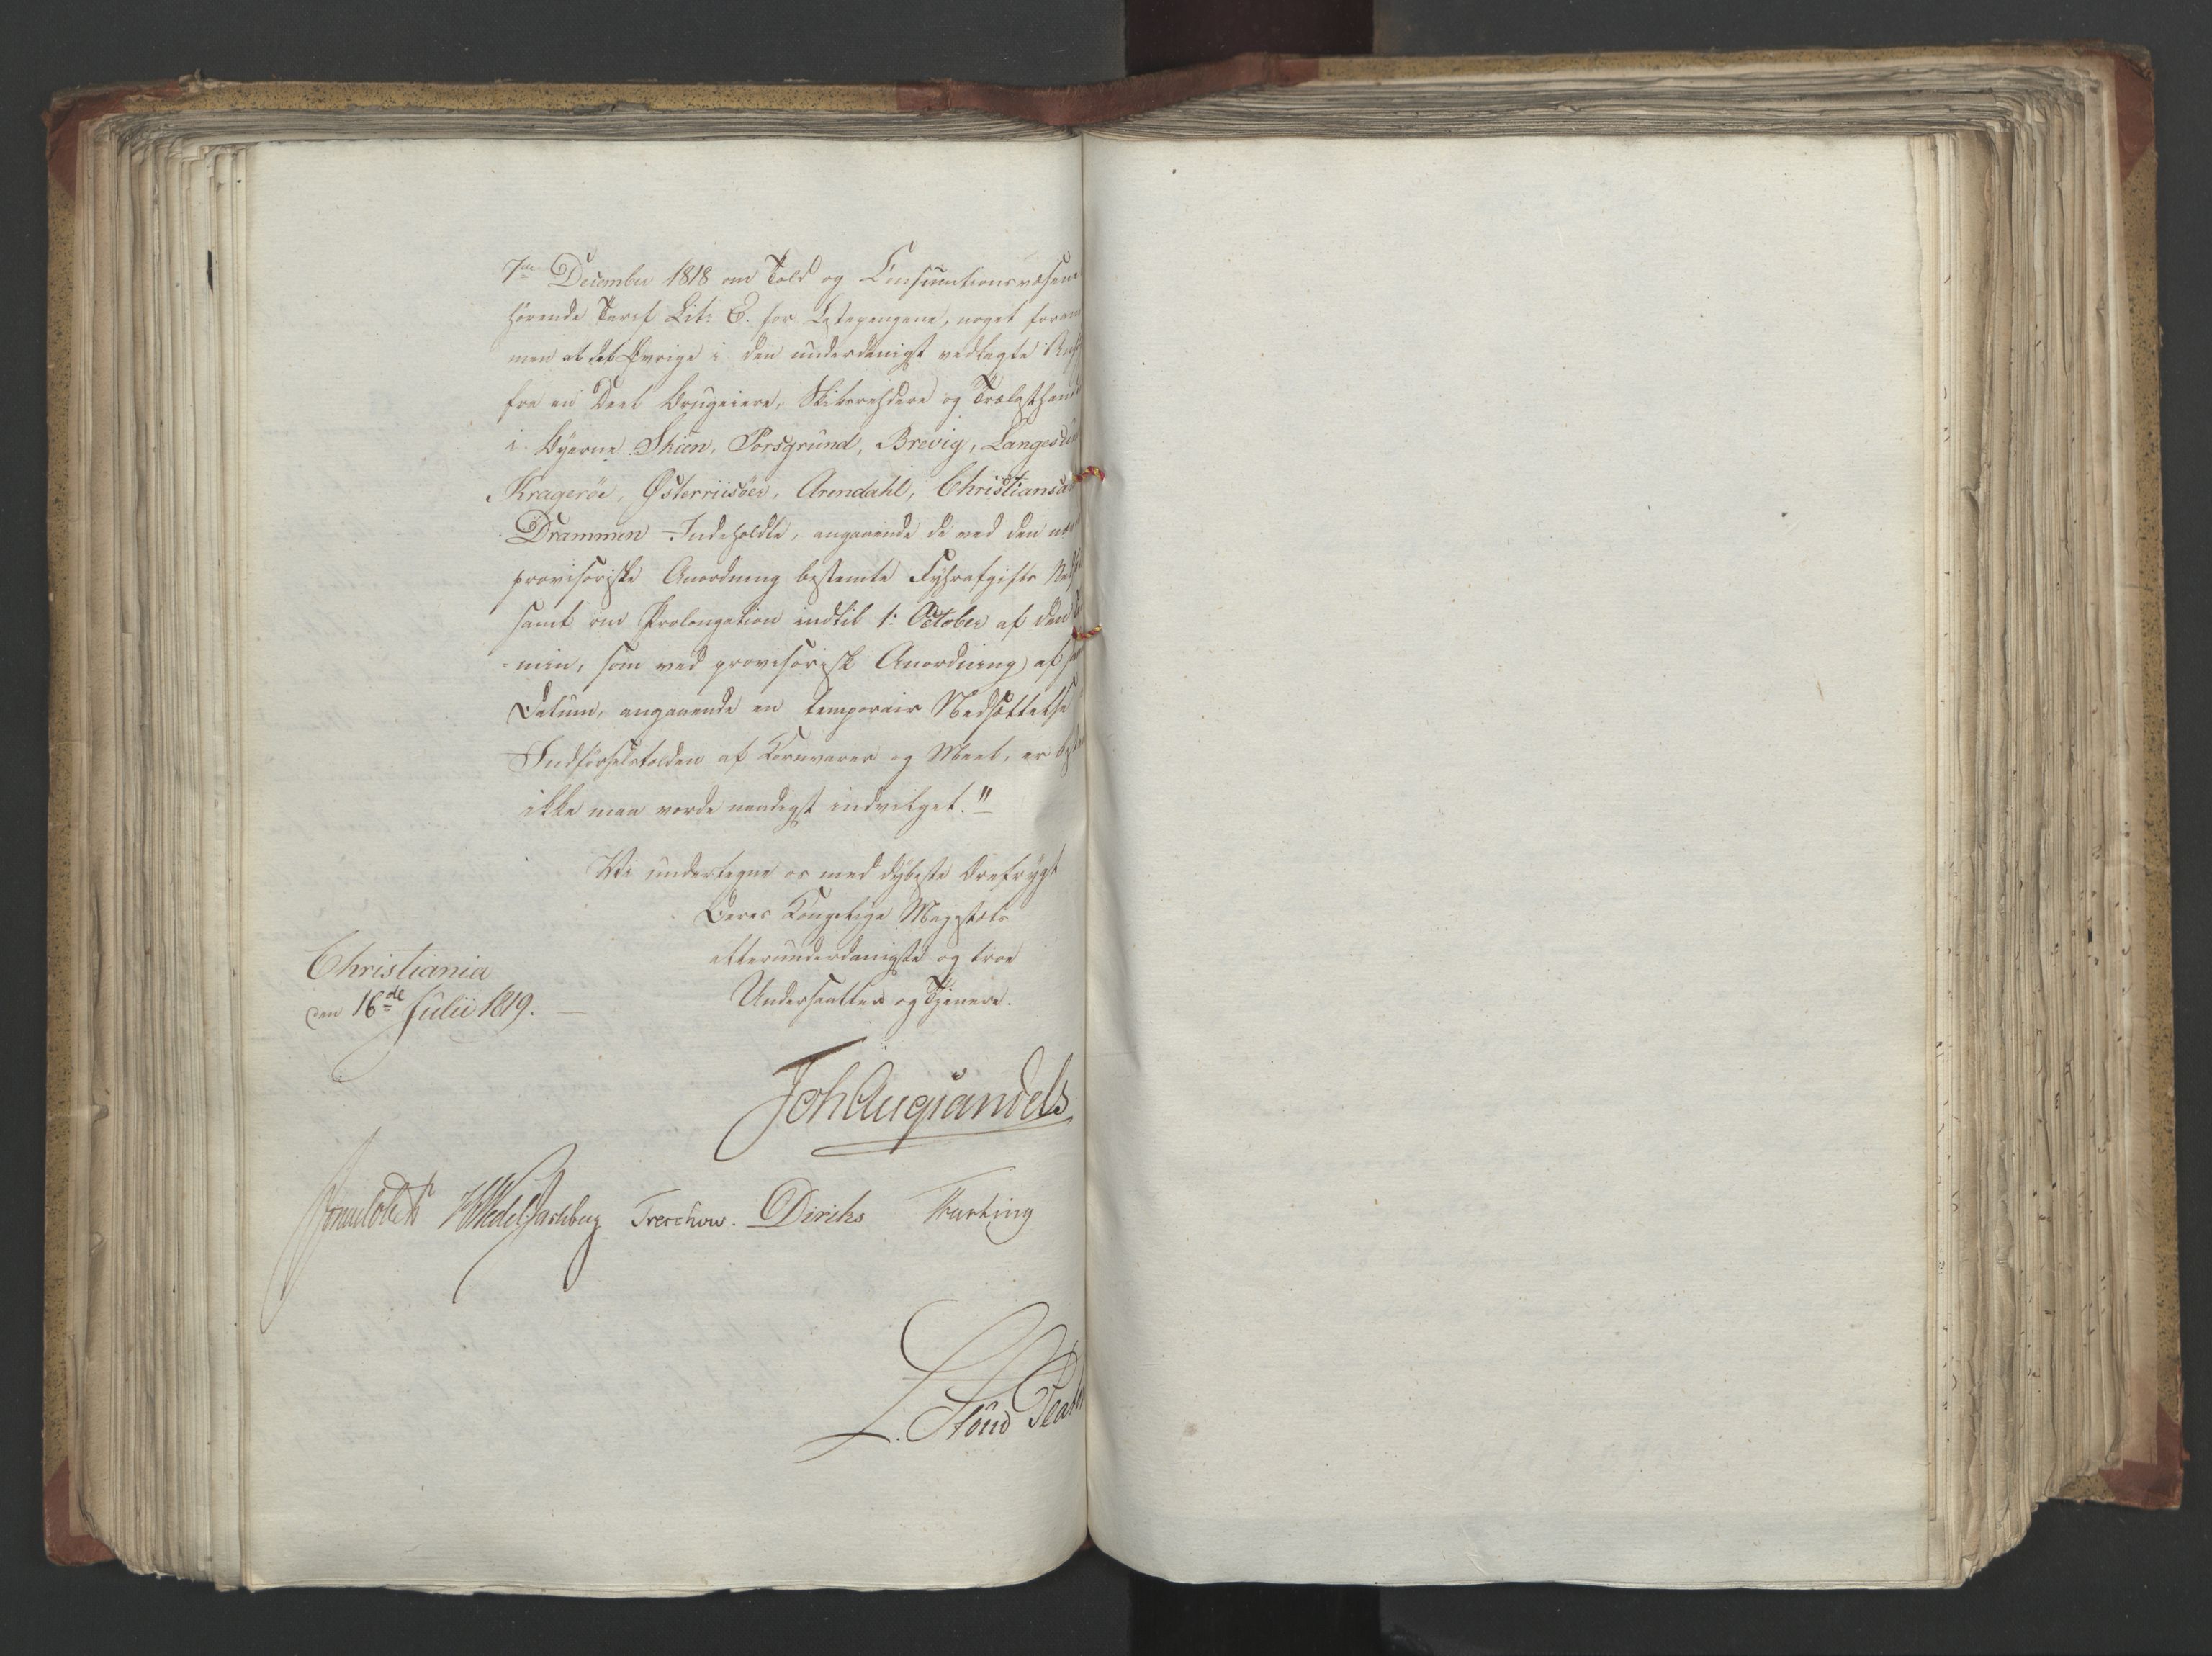 7de December 1818 om Told og Consumtionsvæsenet
hörende Tarif Lit: E. for Lestepengene, noget foran
men at det Övrige i den underdanigst vedlagte
fra en Deel Brugeiere, Skibsrehdere og Trælasthand
i Byerne Skien, Porsgrund, Brevig, Langesund
Kragerøe, Østerriisöer, Arendahl, Christiansa
Drammen Indeholdte, angaaende de ved den
provisoriske Anordning bestemte Fyhrafgifts
samt om Prolongation indtil 1: October af den
-min, som ved provisorisk Anordning af
Datum, angaaende en temporair Nedsættelse
Indförselstolden af Kornvarer og Meel, er
ikke maa vorde naadigst indvilget."
Vi undertegne os med dybeste Ærefrygt
Deres Kongelige Majestæts
allerunderdanigste og troe
Undersaatter og Tjenere.
Christiania
den 16de Julii 1819.
Joh Aug Sandels
Sommerhielm HWedel Jarlsberg Treschow. Diriks Fasting
L. Stoud Plat